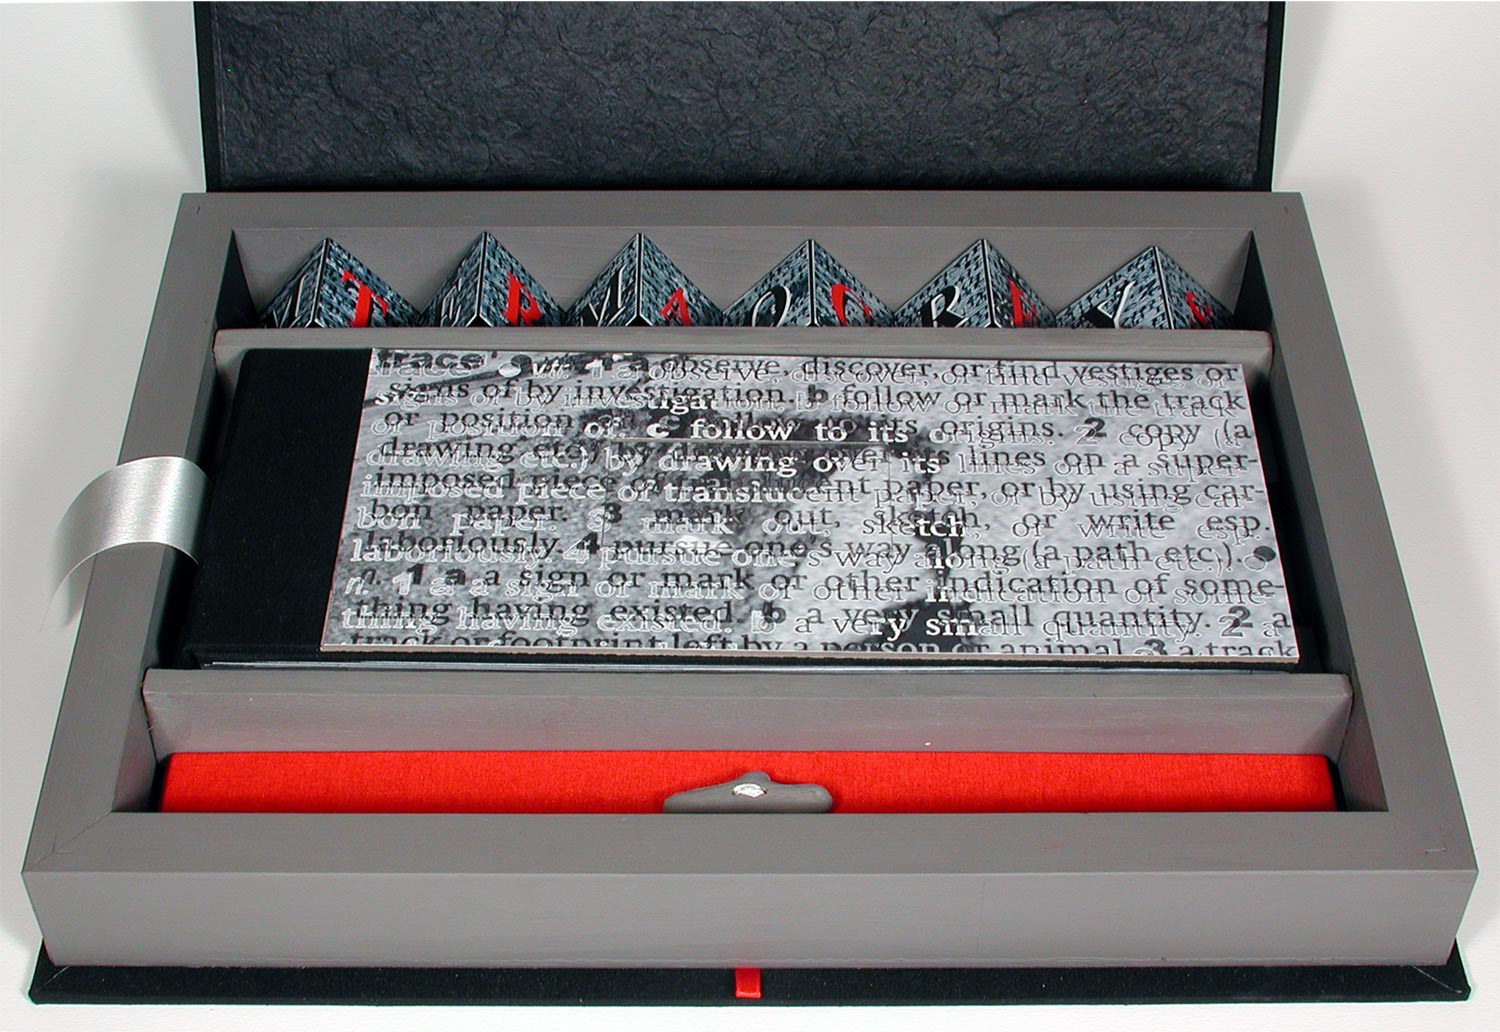 M T E R M A O C R E Y S
trace¹ ● v.tr. 1 a observe, discover, or find vestiges or
signs of by investigation. b follow or mark the track
or position of. c follow to its origins. 2 copy (a
drawing etc.) by drawing over its lines on a super-
imposed piece of translucent paper, or by using car-
bon paper. 3 mark out, sketch, or write esp.
laboriously. 4 pursue one's way along (a path etc.). ●
n. 1 a a sign or mark or other indication of some-
thing having existed. b a very small quantity. 2 a
track or footprint left by a person or animal. 3 a track